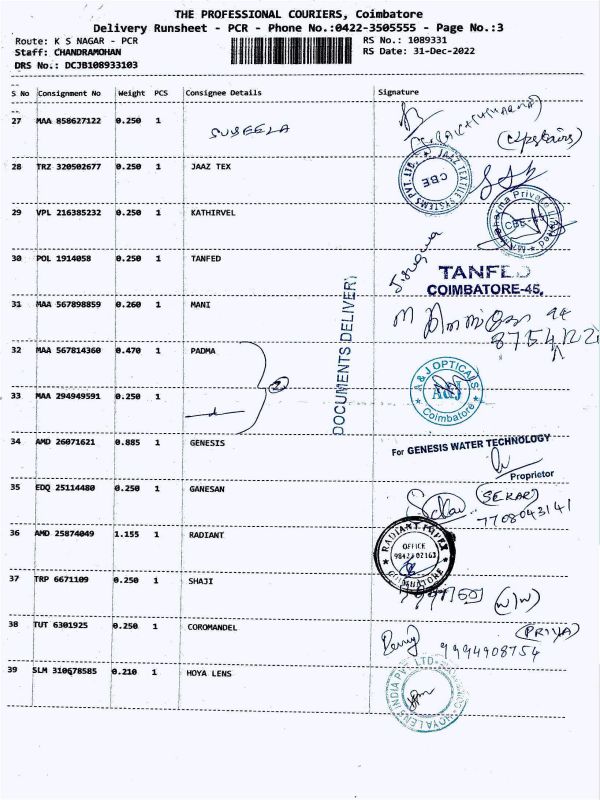 THE PROFESSIONAL COURIERS, Coimbatore
Delivery Runsheet - PCR - Phone No.:0422-3505555 - Page No.:3
Route: K S NAGAR - PCR
RS No.: 1089331
Staff: CHANDRAMOHAN
RS Date: 31-Dec-2022
DRS No.: DCJB108933103
S No Consignment No Weight PCS Consignee Details Signature
27 MAA 858627122 0.250 1 SUSEELA
(Upstairs)
28 TRZ 320502677 0.250 1 JAAZ TEX
JAAZ TEXTILE SYSTEMS PVT. LTD.
CBE
29 VPL 216385232 0.250 1 KATHIRVEL
Pharma Private Limited
CBE-45
30 POL 1914058 0.250 1 TANFED
TANFED
COIMBATORE-45.
31 MAA 567898859 0.260 1 MANI
DOCUMENTS DELIVERY
32 MAA 567814360 0.470 1 PADMA
2
A & J OPTICALS
A&J
Coimbatore
33 MAA 294949591 0.250 1
34 AMD 26071621 0.885 1 GENESIS
For GENESIS WATER TECHNOLOGY
Proprietor
35 EDQ 25114480 0.250 1 GANESAN
(SEKAR)
7708043141
36 AMD 25874049 1.155 1 RADIANT
RADIANT POWER
OFFICE
98422 02163
COIMBATORE
37 TRP 6671109 0.250 1 SHAJI
(W/W)
38 TUT 6301925 0.250 1 COROMANDEL
(PRIYA)
9994908754
39 SLM 310678585 0.210 1 HOYA LENS
HOYA LENS INDIA PVT. LTD.